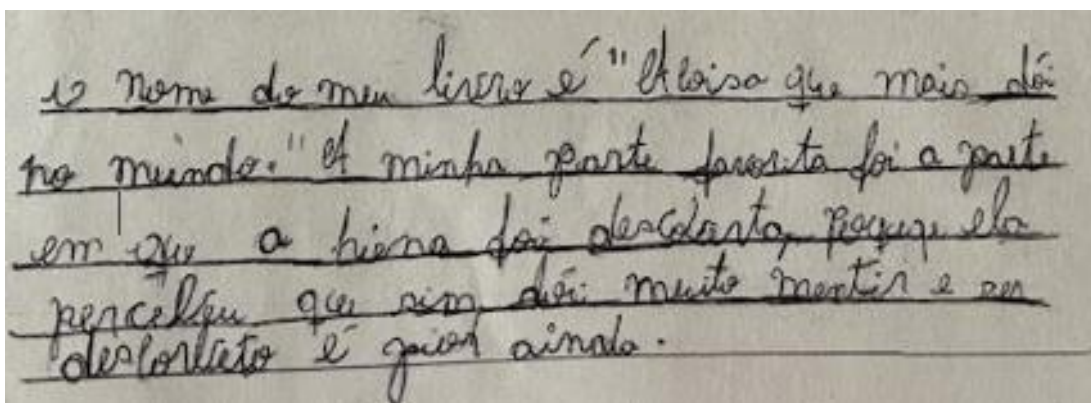 o nome do meu livro é "A coisa que mais dói
no mundo." A minha parte favorita foi a parte
em que a hiena foi descoberta, porque ela
percebeu que sim dói muito mentir e ser
descoberto é pior ainda.